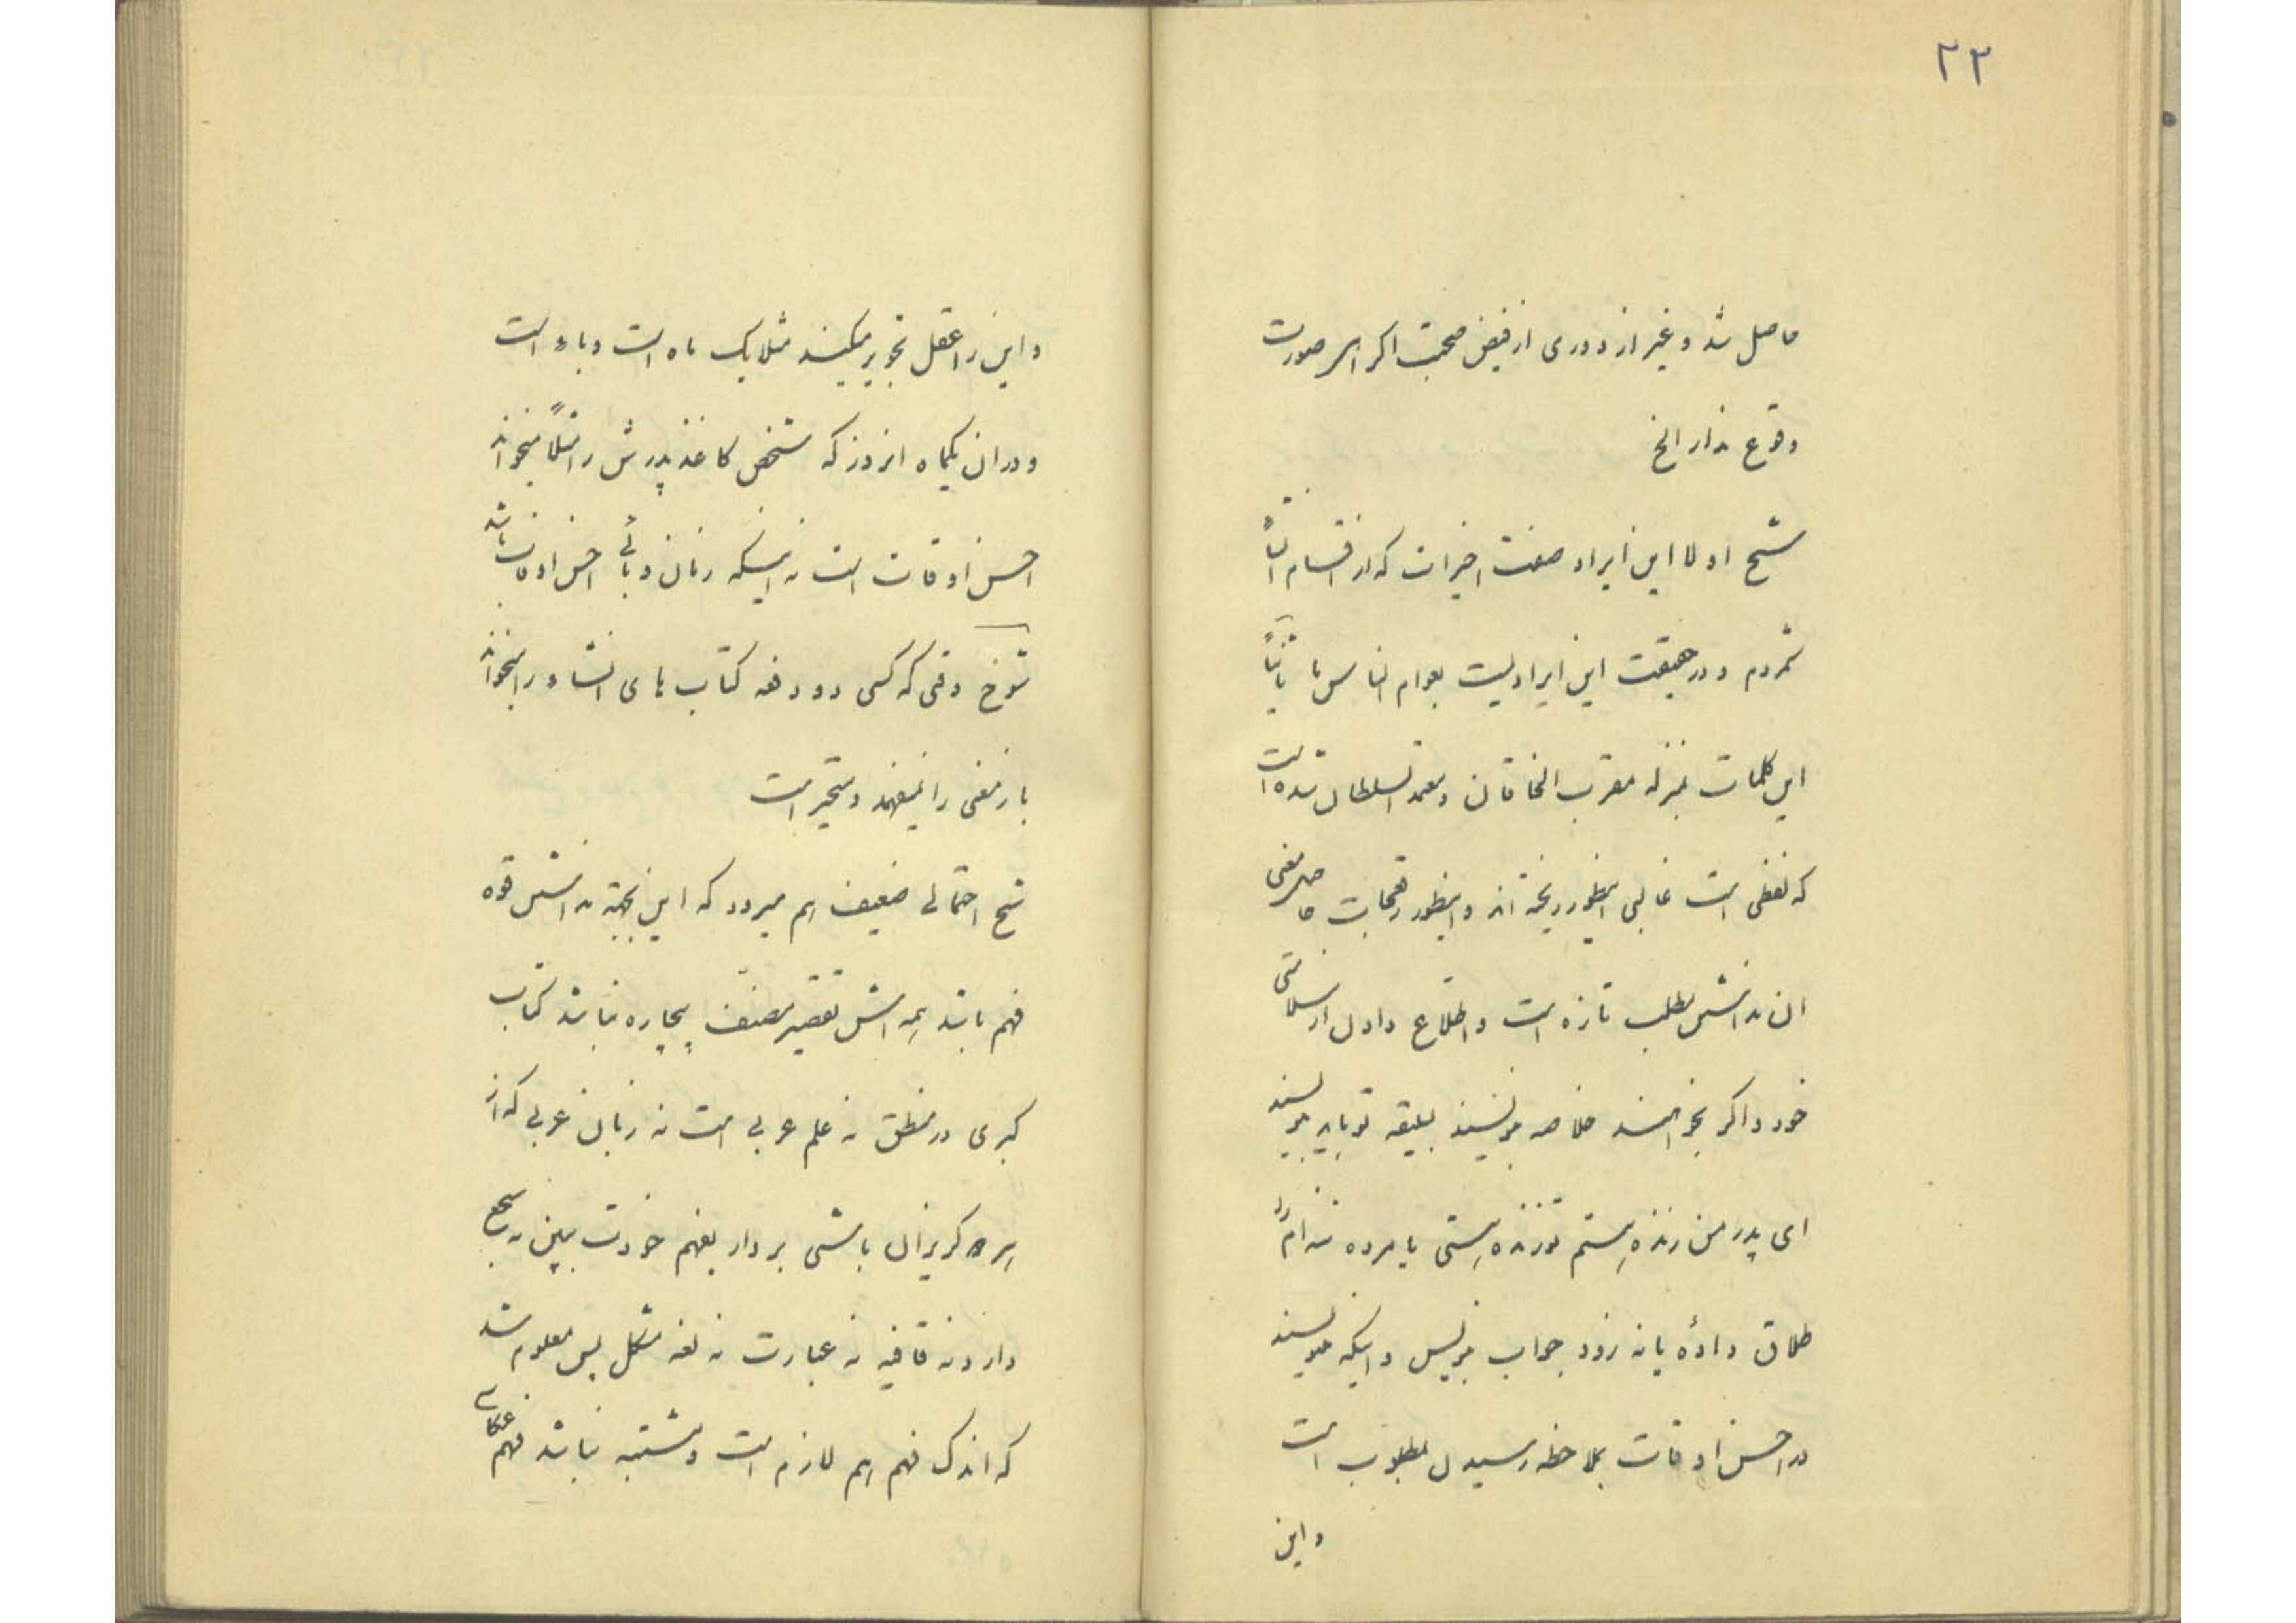 ۲۳
حاصل شد و غیر از دوری از فیض صحبت اگر امر صورت
وقوع ندارد الخ
شیخ اولا این ایراد صفت اخیرات که از اقسام انشاء
شمردم و در حقیقت این ایراد نیست بعوام الناس ما ثانیاً
این کلمات بمنزله مقرب الخاقان و معتمد السلطان شده است
که لفظی است غالبی اینطور ریخته اند و اینطور رقمجات حاصل معنی
ان نداشتن مطلب تازه است و اطلاع دادن از سلامتی
خود و اگر بخواهند خلاصه بنویسند بسلیقه تو باید بنویسند
ای پدر من زنده هستم تو زنده هستی یا مرده نه ام را
طلاق دادهٔ یا نه زود جواب بنویس و اینکه مینویسند
در احسن اوقات بملاحظه رسیدن مطلوب است
و این
و این را عقل تجویز میکند مثلا یک ماه است وباء است
و در ان یکماه انروز که شخص کاغذ پدرش را مثلاً میخواند
احسن اوقات است نه اینکه زمان وبائی احسن اوقات باشد
شوخ وقتی که کسی دو دفعه کتاب های انشاء را میخواند
باز معنی را نمیفهمد و متحیر است
شیخ احتمالی ضعیف هم میرود که این بجهة نداشتن قوه
فهم باشد همه اش تقصیر مصنف بیچاره نباشد کتاب
کبری در منطق نه علم عربی است نه زبان عربی که از
هر دو گریزان باشی بردار بفهم خودت ببین نه سجع
دارد نه قافیه نه عبارت نه لغه مشکل پس معلوم شد
که اندک فهم هم لازم است و مشتبه نباشد فهم